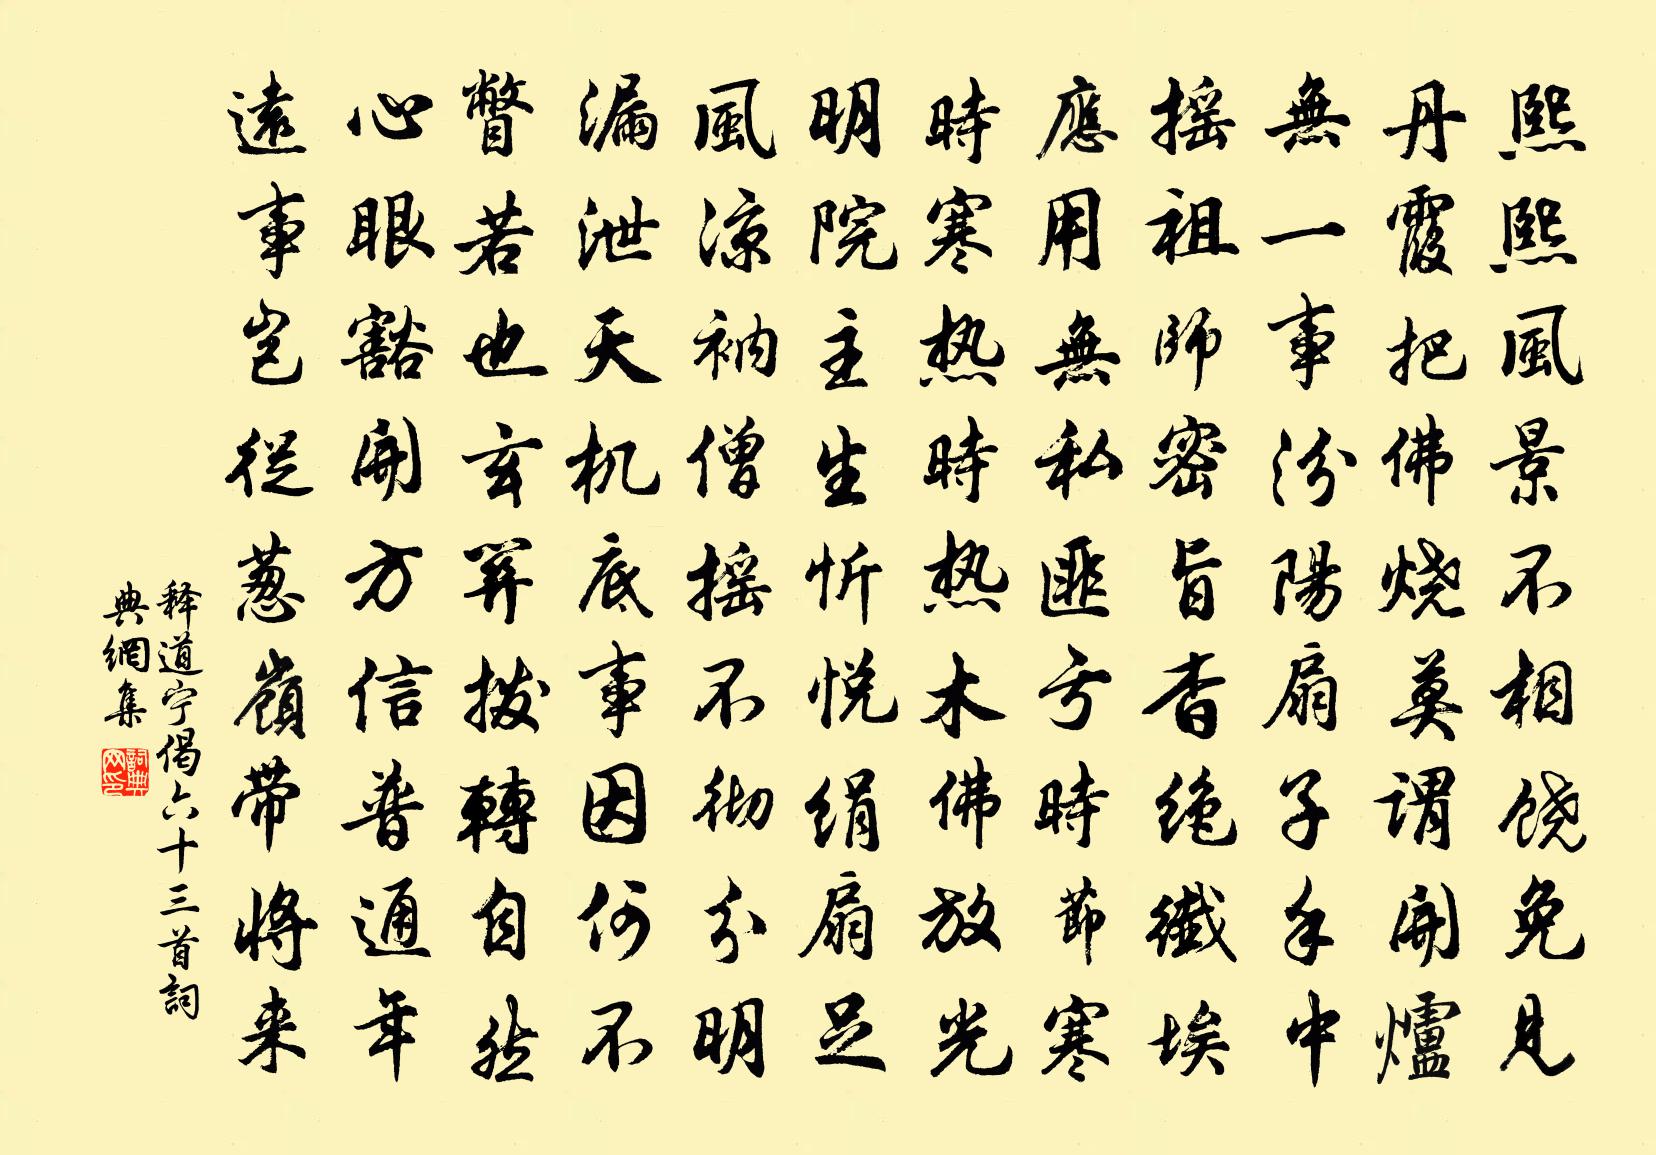 熙熙風景不相饶免見
丹霞把佛烧莫谓開爐
無一事汾陽扇子手中
摇祖師密旨杳绝纖埃
應用無私匪亏時節寒
時寒热時時热木佛放光
明院主生忻悦绢扇足
風涼衲僧摇不彻分明
漏泄天机底事因何不
瞥若也玄关拨轉自然
心眼豁開方信普通年
遠事岂從葱嶺帶將来
释道宁偈六十三首詞
典網集
詞典网印